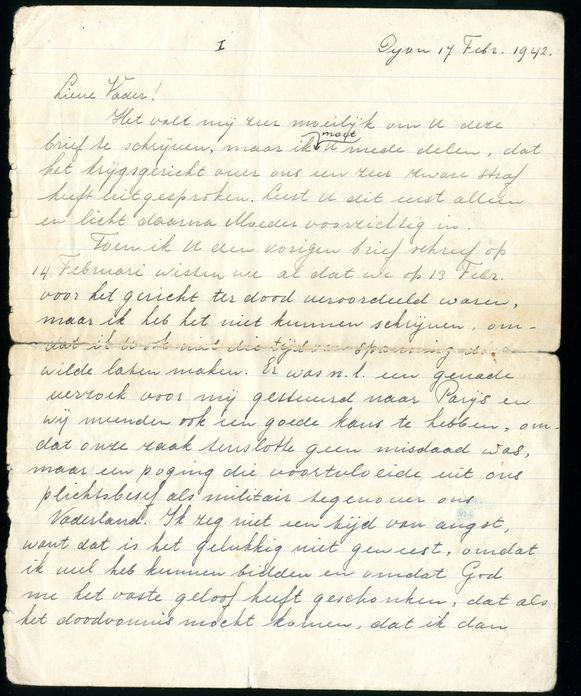 I
Dyon 17 Febr. 1942.
Lieve Vader!
Het valt mij zeer moeilijk om U deze
brief te schrijven, maar ik moet U mede delen, dat
het krijgsgericht over ons een zeer zware straf
heeft uitgesproken. Leest U dit eerst alleen
en licht daarna Moeder voorzichtig in.
Toen ik U den vorigen brief schreef op
14 Februari wisten we al dat we op 13 Febr.
voor het gericht ter dood veroordeeld waren,
maar ik heb het niet kunnen schrijven, om-
dat ik U ook niet die tijd van spanning
wilde laten maken. Er was n.l. een genade
verzoek voor mij gestuurd naar Parijs en
wij meenden ook een goede kans te hebben, om-
dat onze zaak tenslotte geen misdaad was,
maar een poging die voortvloeide uit ons
plichtsbesef als militair tegenover ons
Vaderland. Ik zeg niet een tijd van angst,
want dat is het gelukkig niet geweest, omdat
ik veel heb kunnen bidden en omdat God
me het vaste geloof heeft geschonken, dat als
het doodvonnis mocht komen, dat ik dan